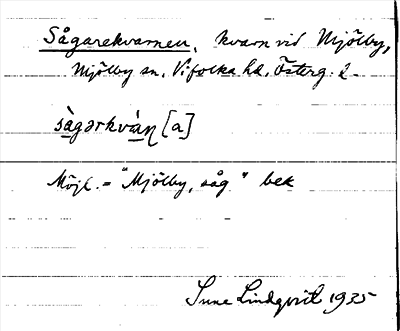 Sågarekvarnen, kvarn vid Mjölby,
Mjölby sn, Vifolka hd, Österg. l.
sàgərkvàṇ [a]
Möjl. = "Mjölby, såg" bek
Sune Lindqvist 1935